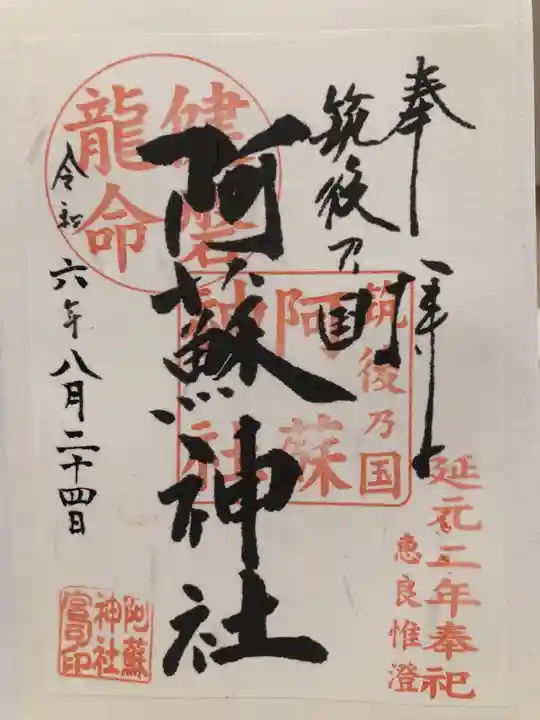 奉拝
筑後乃国
阿蘇神社
令和六年八月二十四日
健磐
龍命
筑後乃国
阿蘇
神社
延元二年奉祀
恵良惟澄
阿蘇
神社
宮司印